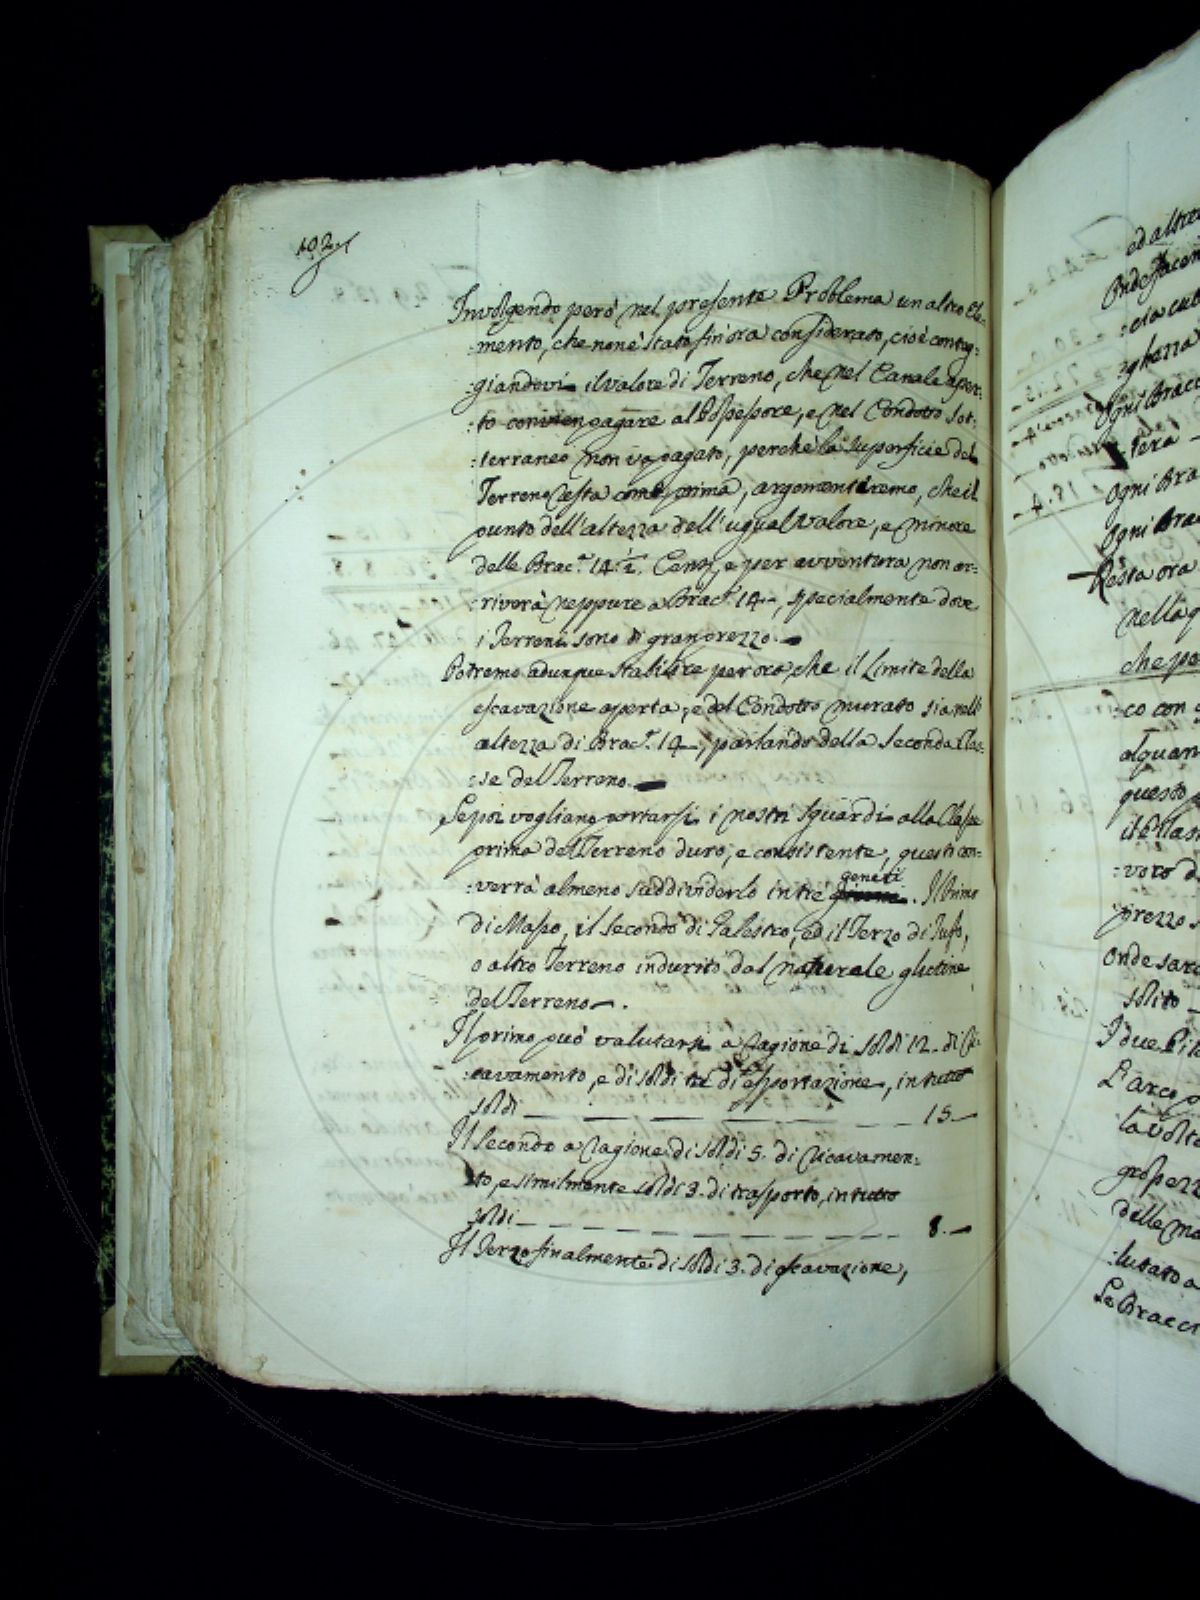 192
Involgendo però nel presente Problema un altro Ele:
:mento, che non è stato fin'ora considerato, cioè conteg:
:giandovi il valore di Terreno, che nel Canale aper:
:to convien pagare al Possessore, e nel Condotto Sot:
:terraneo non va pagato, perchè la Superficie del
Terreno resta come prima, argomentaremo, che il
punto dell'altezza dell'ugual valore, e minore
delle Brac.ª 14. ½. Cens, e per avventura non ar:
:riverà neppure a Brac.ª 14, specialmente dove
i Terreni sono di gran prezzo.
Potremo adunque stabilire per ora, che il Limite della
escavazione aperta, e del Condotto murato sia nell'
altezza di Brac.ª 14, parlando della Seconda Clas:
:se del Terreno.
Se poi vogliano portarsi i nostri sguardi alla Classe
prima del Terreno duro, e consistente, questi con:
generi
:verrà almeno suddividerlo in tre . Il Primo
di Masso, il Secondo di Galestro, ed il Terzo di Tufo,
o altro Terreno indurito dal naturale glutine
del Terreno.
Il primo può valutarsi a ragione di soldi 12. di Ca:
:vamento, e di soldi tre di esportazione, in tutto
soldi 15.
Il Secondo a ragione di soldi 5. di ricavamen:
:to, e similmente soldi 3. di trasporto, in tutto
soldi 8.
Il Terzo finalmente di soldi 3. di escavazione,
ed altre
ghezza
Ogni Bracc
tera
Ogni Bra
Ogni Brac
Resta ora
nella q
che pe
co con
alquan
questo
prezzo
onde sarà
solito
I due Pil
L'arco
la volta
grossezz
delle ma
:lutato a
Le Bracci